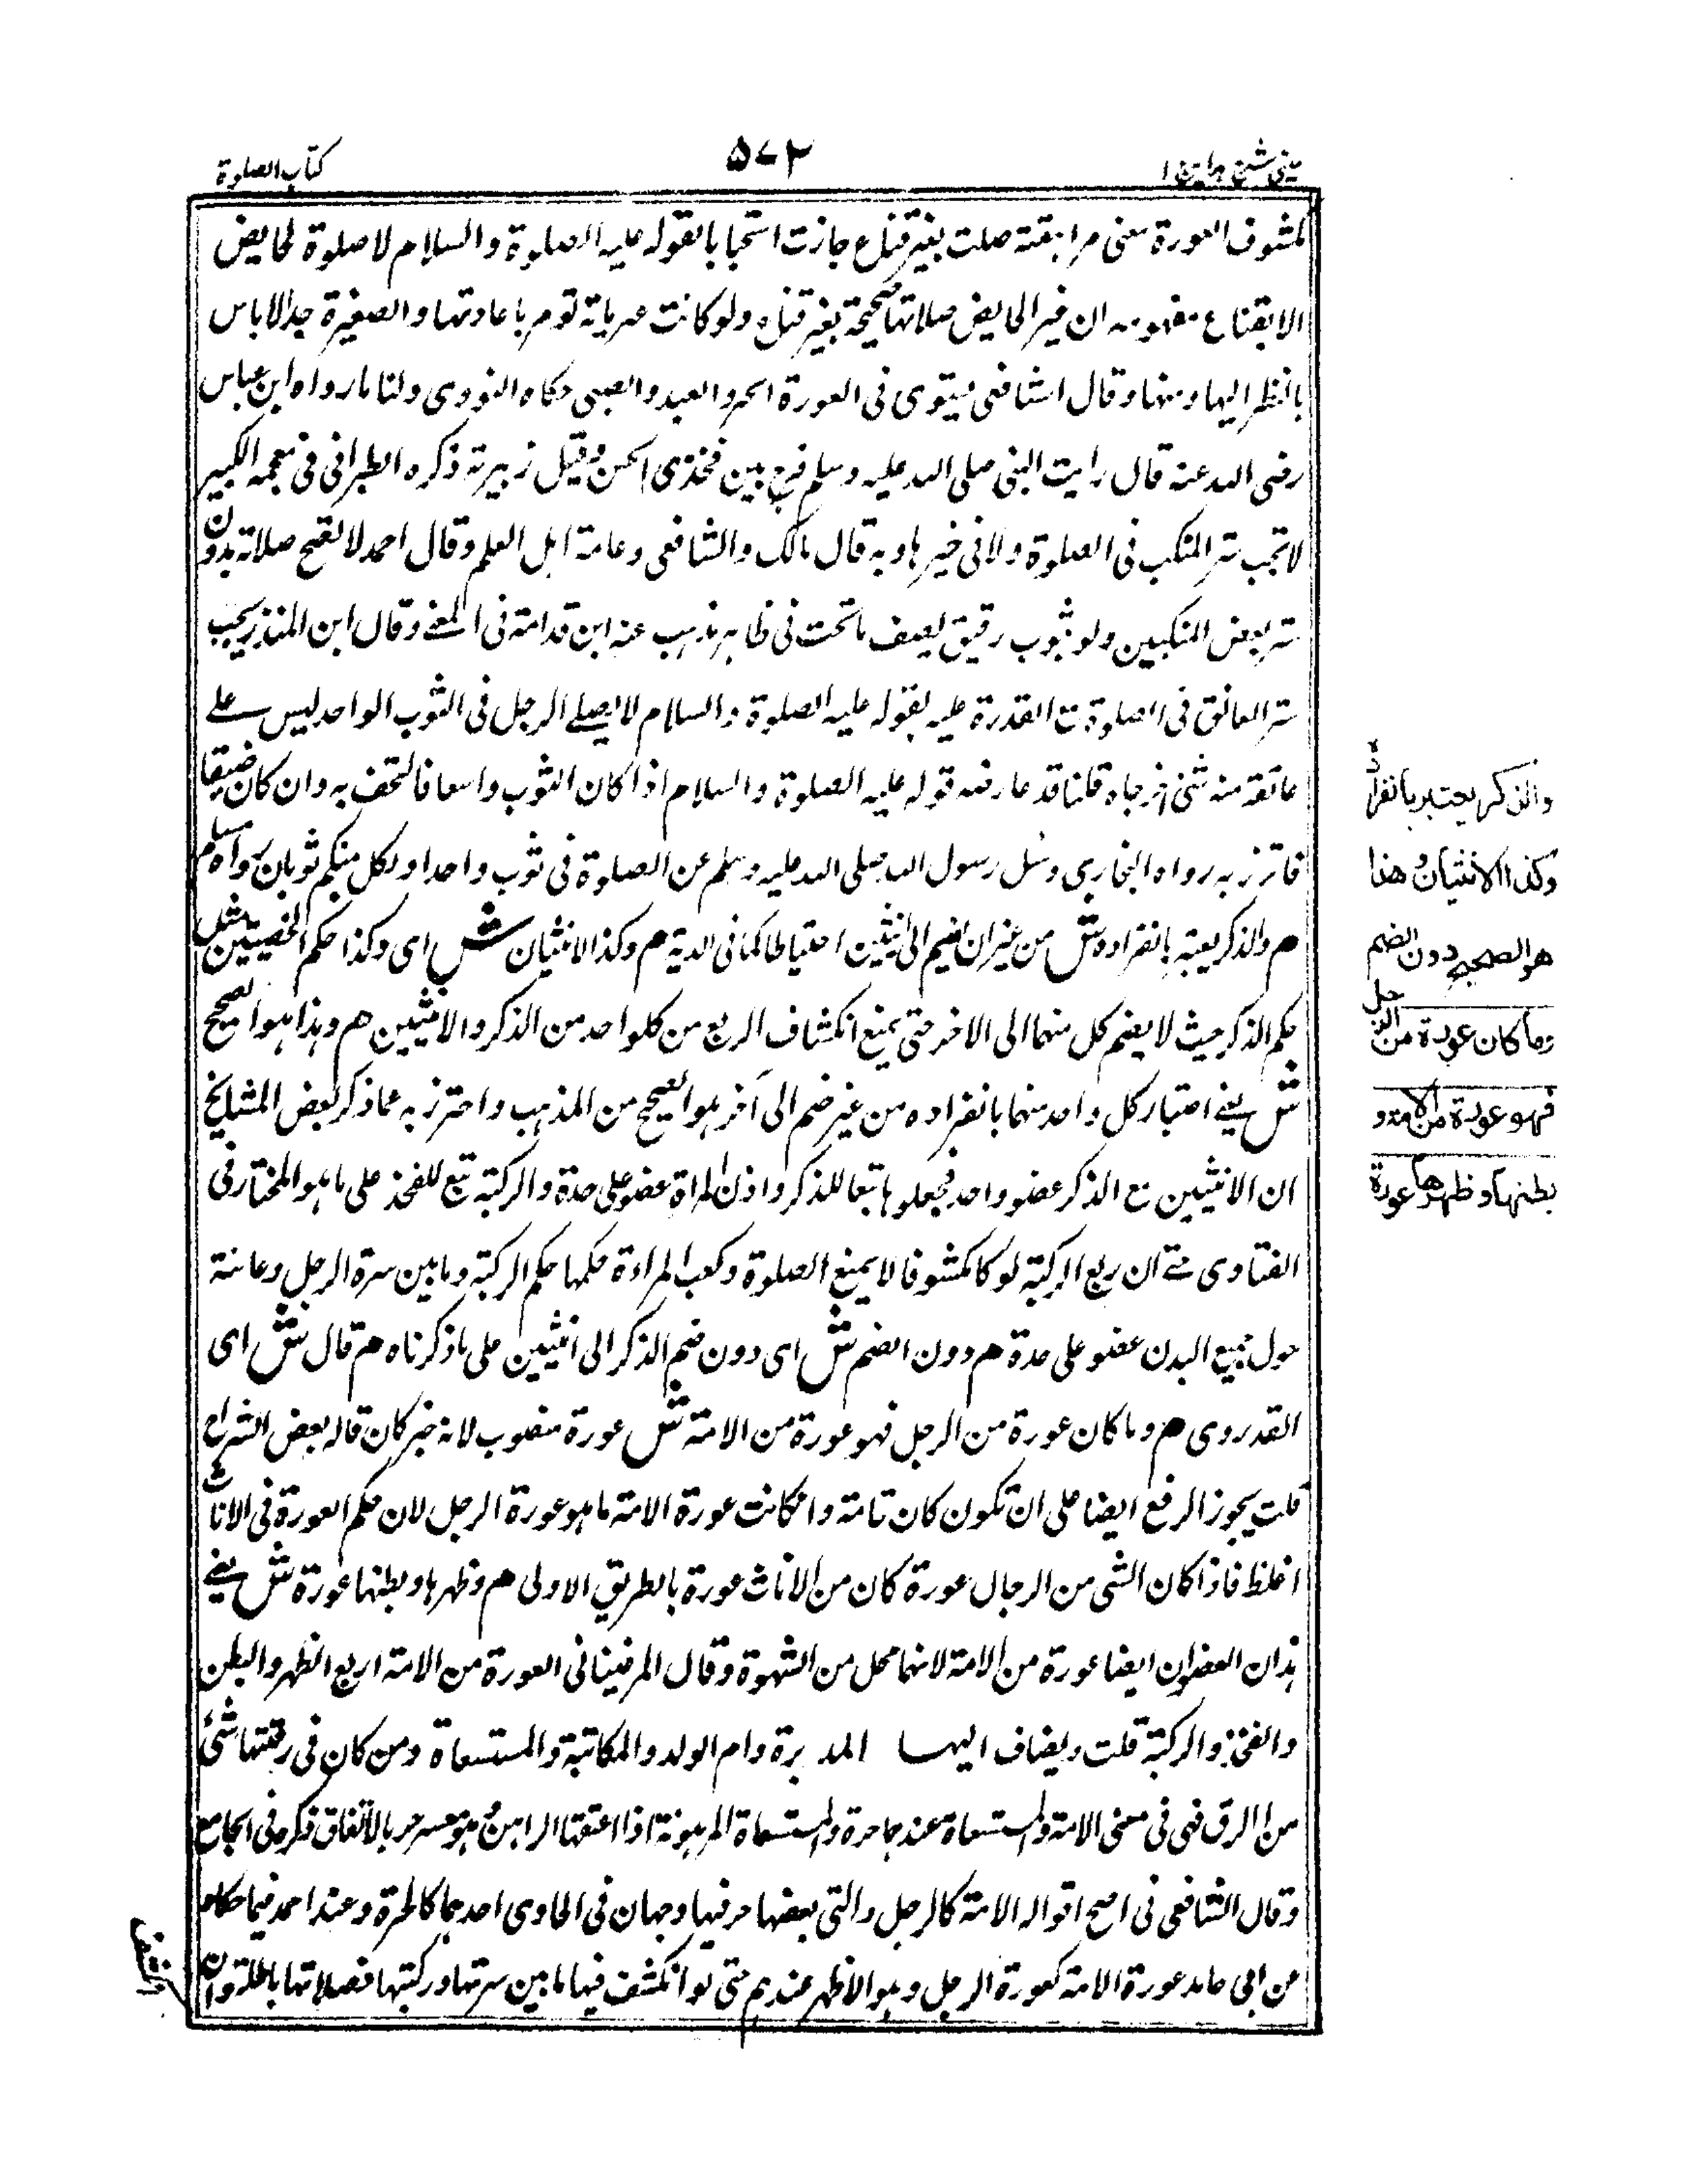 عینی شرح هدایة ج ۱
۵۷۲
کتاب الصلوة
مکشوف العورة معنى مراهقة صلت بغیر قناع جازت استحبابا لقوله علیه الصلوة والسلام لا صلوة لحایض
الا بقناع مفهومه ان غیر الحایض صلاتها صحیحة بغیر قناع ولو کانت عریانة تومر باعادتها والصغیرة جدا لا باس
بالنظر الیها ومنها وقال الشافعی یستوی فی العورة الحر والعبد والصبی حکاه النووی ولنا ما رواه ابن عباس
رضی الله عنه قال رایت النبی صلی الله علیه وسلم فرج بین فخذی الحسن وقبل زبیرته ذکره الطبرانی فی معجمه الکبیر
لا تجب ستر المنکب فی الصلوة ولا فی غیرها وبه قال مالک والشافعی وعامة اهل العلم وقال احمد لا تصح صلاته بدون
ستر بعض المنکبین ولو بثوب رقیق یصف ما تحت فی ظاهر مذهب عنه ابن قدامة فی المغنی وقال ابن المنذر یجب
ستر العاتق فی الصلوة مع القدرة علیه لقوله علیه الصلوة والسلام لا یصلی الرجل فی الثوب الواحد لیس علی
عاتقه منه شئ اخرجاه قلنا قد عارضه قوله علیه الصلوة والسلام اذا کان الثوب واسعا فالتحف به وان کان ضیقا
فاتزر به رواه البخاری وسئل رسول الله صلی الله علیه وسلم عن الصلوة فی ثوب واحد اولکل منکم ثوبان رواه مسلم
م والذکر یعتبر بانفراده ش من غیر ان یضم الی انثیین احتیاطا کما فی الدیة م وکذا الانثیان ش ای وکذا حکم الخصیتین مثل
حکم الذکر حیث لا یضم کل منهما الی الاخر حتی یمنع انکشاف الربع من کلواحد من الذکر والانثیین م وهذا هو الصحیح
ش یعنی اعتبار کل واحد منهما بانفراده من غیر ضم الی آخر هو الصحیح من المذهب واحترز به عما ذکر بعض المشایخ
ان الانثیین مع الذکر عضو واحد فجعلوها تبعا للذکر واذن المراة عضو علی حدة والرکبة تبع للفخذ علی ما هو المختار فی
الفتاوی حتی ان ربع الرکبة لو کا مکشوفا لا یمنع الصلوة وکعب المراءة حکمها حکم الرکبة وما بین سرة الرجل وعانته
حول جمیع البدن عضو علی حدة م دون الضم ش ای دون ضم الذکر الی انثیین علی ما ذکرناه م قال ش ای
القدروی م وما کان عورة من الرجل فهو عورة من الامة ش عورة منصوب لانه خبر کان قاله بعض الشراح
قلت یجوز الرفع ایضا علی ان تکون کان تامة وانکانت عورة الامة ما هو عورة الرجل لان حکم العورة فی الاناث
اغلظ فاذا کان الشی من الرجال عورة کان من الاناث عورة بالطریق الاولی م وظهرها وبطنها عورة ش یعنی
هذان العضوان ایضا عورة من الامة لانهما محل من الشهوة وقال المرغینانی العورة من الامة اربع الظهر والبطن
والفخذ والرکبة قلت ویضاف الیها المدبرة وام الولد والمکاتبة والمستسعاة ومن کان فی رقبتها شئ
من الرق فهی فی معنی الامة والمستسعاة عندهما حرة والمستسعاة المرهونة اذا اعتقها الراهن وهو معسر حر بالاتفاق ذکره فی الجامع
وقال الشافعی فی اصح اقواله الامة کالرجل والتی بعضها حر فیها وجهان فی الحاوی احدهما کالحرة وعند احمد فیما حکاه
عن ابی حامد عورة الامة کعورة الرجل وهو الاظهر عندهم حتی لو انکشف فیها ما بین سرتها ورکبتها فصلاتها باطلة وان
والذکر یعتبر بانفراده
وکذا الانثیان وهذا
هو الصحیح دون الضم
وما کان عورة من الرجل
فهو عورة من الامة و
بطنها وظهرها عورة